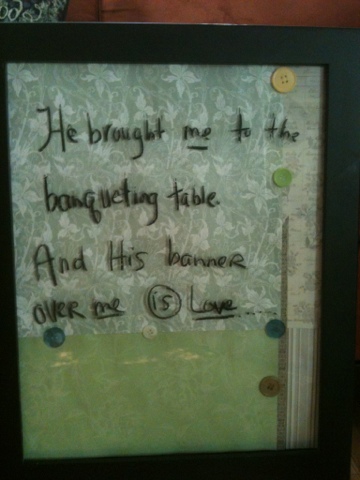 He brought me to the
banqueting table.
And His banner
over me is Love.....